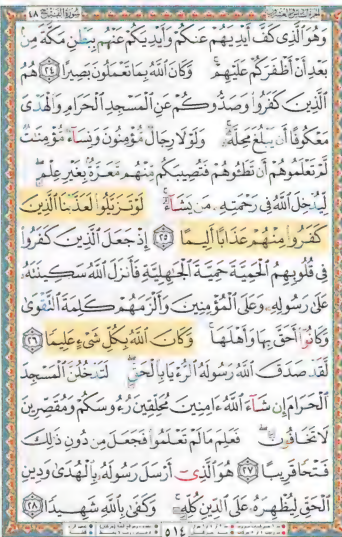 سورة الفتح ٤٨
وَهُوَ ٱلَّذِى كَفَّ أَيْدِيَهُمْ عَنكُمْ وَأَيْدِيَكُمْ عَنْهُم بِبَطْنِ مَكَّةَ مِنۢ
بَعْدِ أَنْ أَظْفَرَكُمْ عَلَيْهِمْ ۚ وَكَانَ ٱللَّهُ بِمَا تَعْمَلُونَ بَصِيرًا ٢٤ هُمُ
ٱلَّذِينَ كَفَرُوا۟ وَصَدُّوكُمْ عَنِ ٱلْمَسْجِدِ ٱلْحَرَامِ وَٱلْهَدْىَ
مَعْكُوفًا أَن يَبْلُغَ مَحِلَّهُۥ ۚ وَلَوْلَا رِجَالٌ مُّؤْمِنُونَ وَنِسَآءٌ مُّؤْمِنَٰتٌ
لَّمْ تَعْلَمُوهُمْ أَن تَطَـُٔوهُمْ فَتُصِيبَكُم مِّنْهُم مَّعَرَّةٌۢ بِغَيْرِ عِلْمٍ ۖ
لِّيُدْخِلَ ٱللَّهُ فِى رَحْمَتِهِۦ مَن يَشَآءُ ۚ لَوْ تَزَيَّلُوا۟ لَعَذَّبْنَا ٱلَّذِينَ
كَفَرُوا۟ مِنْهُمْ عَذَابًا أَلِيمًا ٢٥ إِذْ جَعَلَ ٱلَّذِينَ كَفَرُوا۟
فِى قُلُوبِهِمُ ٱلْحَمِيَّةَ حَمِيَّةَ ٱلْجَٰهِلِيَّةِ فَأَنزَلَ ٱللَّهُ سَكِينَتَهُۥ
عَلَىٰ رَسُولِهِۦ وَعَلَى ٱلْمُؤْمِنِينَ وَأَلْزَمَهُمْ كَلِمَةَ ٱلتَّقْوَىٰ
وَكَانُوٓا۟ أَحَقَّ بِهَا وَأَهْلَهَا ۚ وَكَانَ ٱللَّهُ بِكُلِّ شَىْءٍ عَلِيمًا ٢٦
لَّقَدْ صَدَقَ ٱللَّهُ رَسُولَهُ ٱلرُّءْيَا بِٱلْحَقِّ ۖ لَتَدْخُلُنَّ ٱلْمَسْجِدَ
ٱلْحَرَامَ إِن شَآءَ ٱللَّهُ ءَامِنِينَ مُحَلِّقِينَ رُءُوسَكُمْ وَمُقَصِّرِينَ
لَا تَخَافُونَ ۖ فَعَلِمَ مَا لَمْ تَعْلَمُوا۟ فَجَعَلَ مِن دُونِ ذَٰلِكَ
فَتْحًا قَرِيبًا ٢٧ هُوَ ٱلَّذِىٓ أَرْسَلَ رَسُولَهُۥ بِٱلْهُدَىٰ وَدِينِ
ٱلْحَقِّ لِيُظْهِرَهُۥ عَلَى ٱلدِّينِ كُلِّهِۦ ۚ وَكَفَىٰ بِٱللَّهِ شَهِيدًا ٢٨
٥١٤